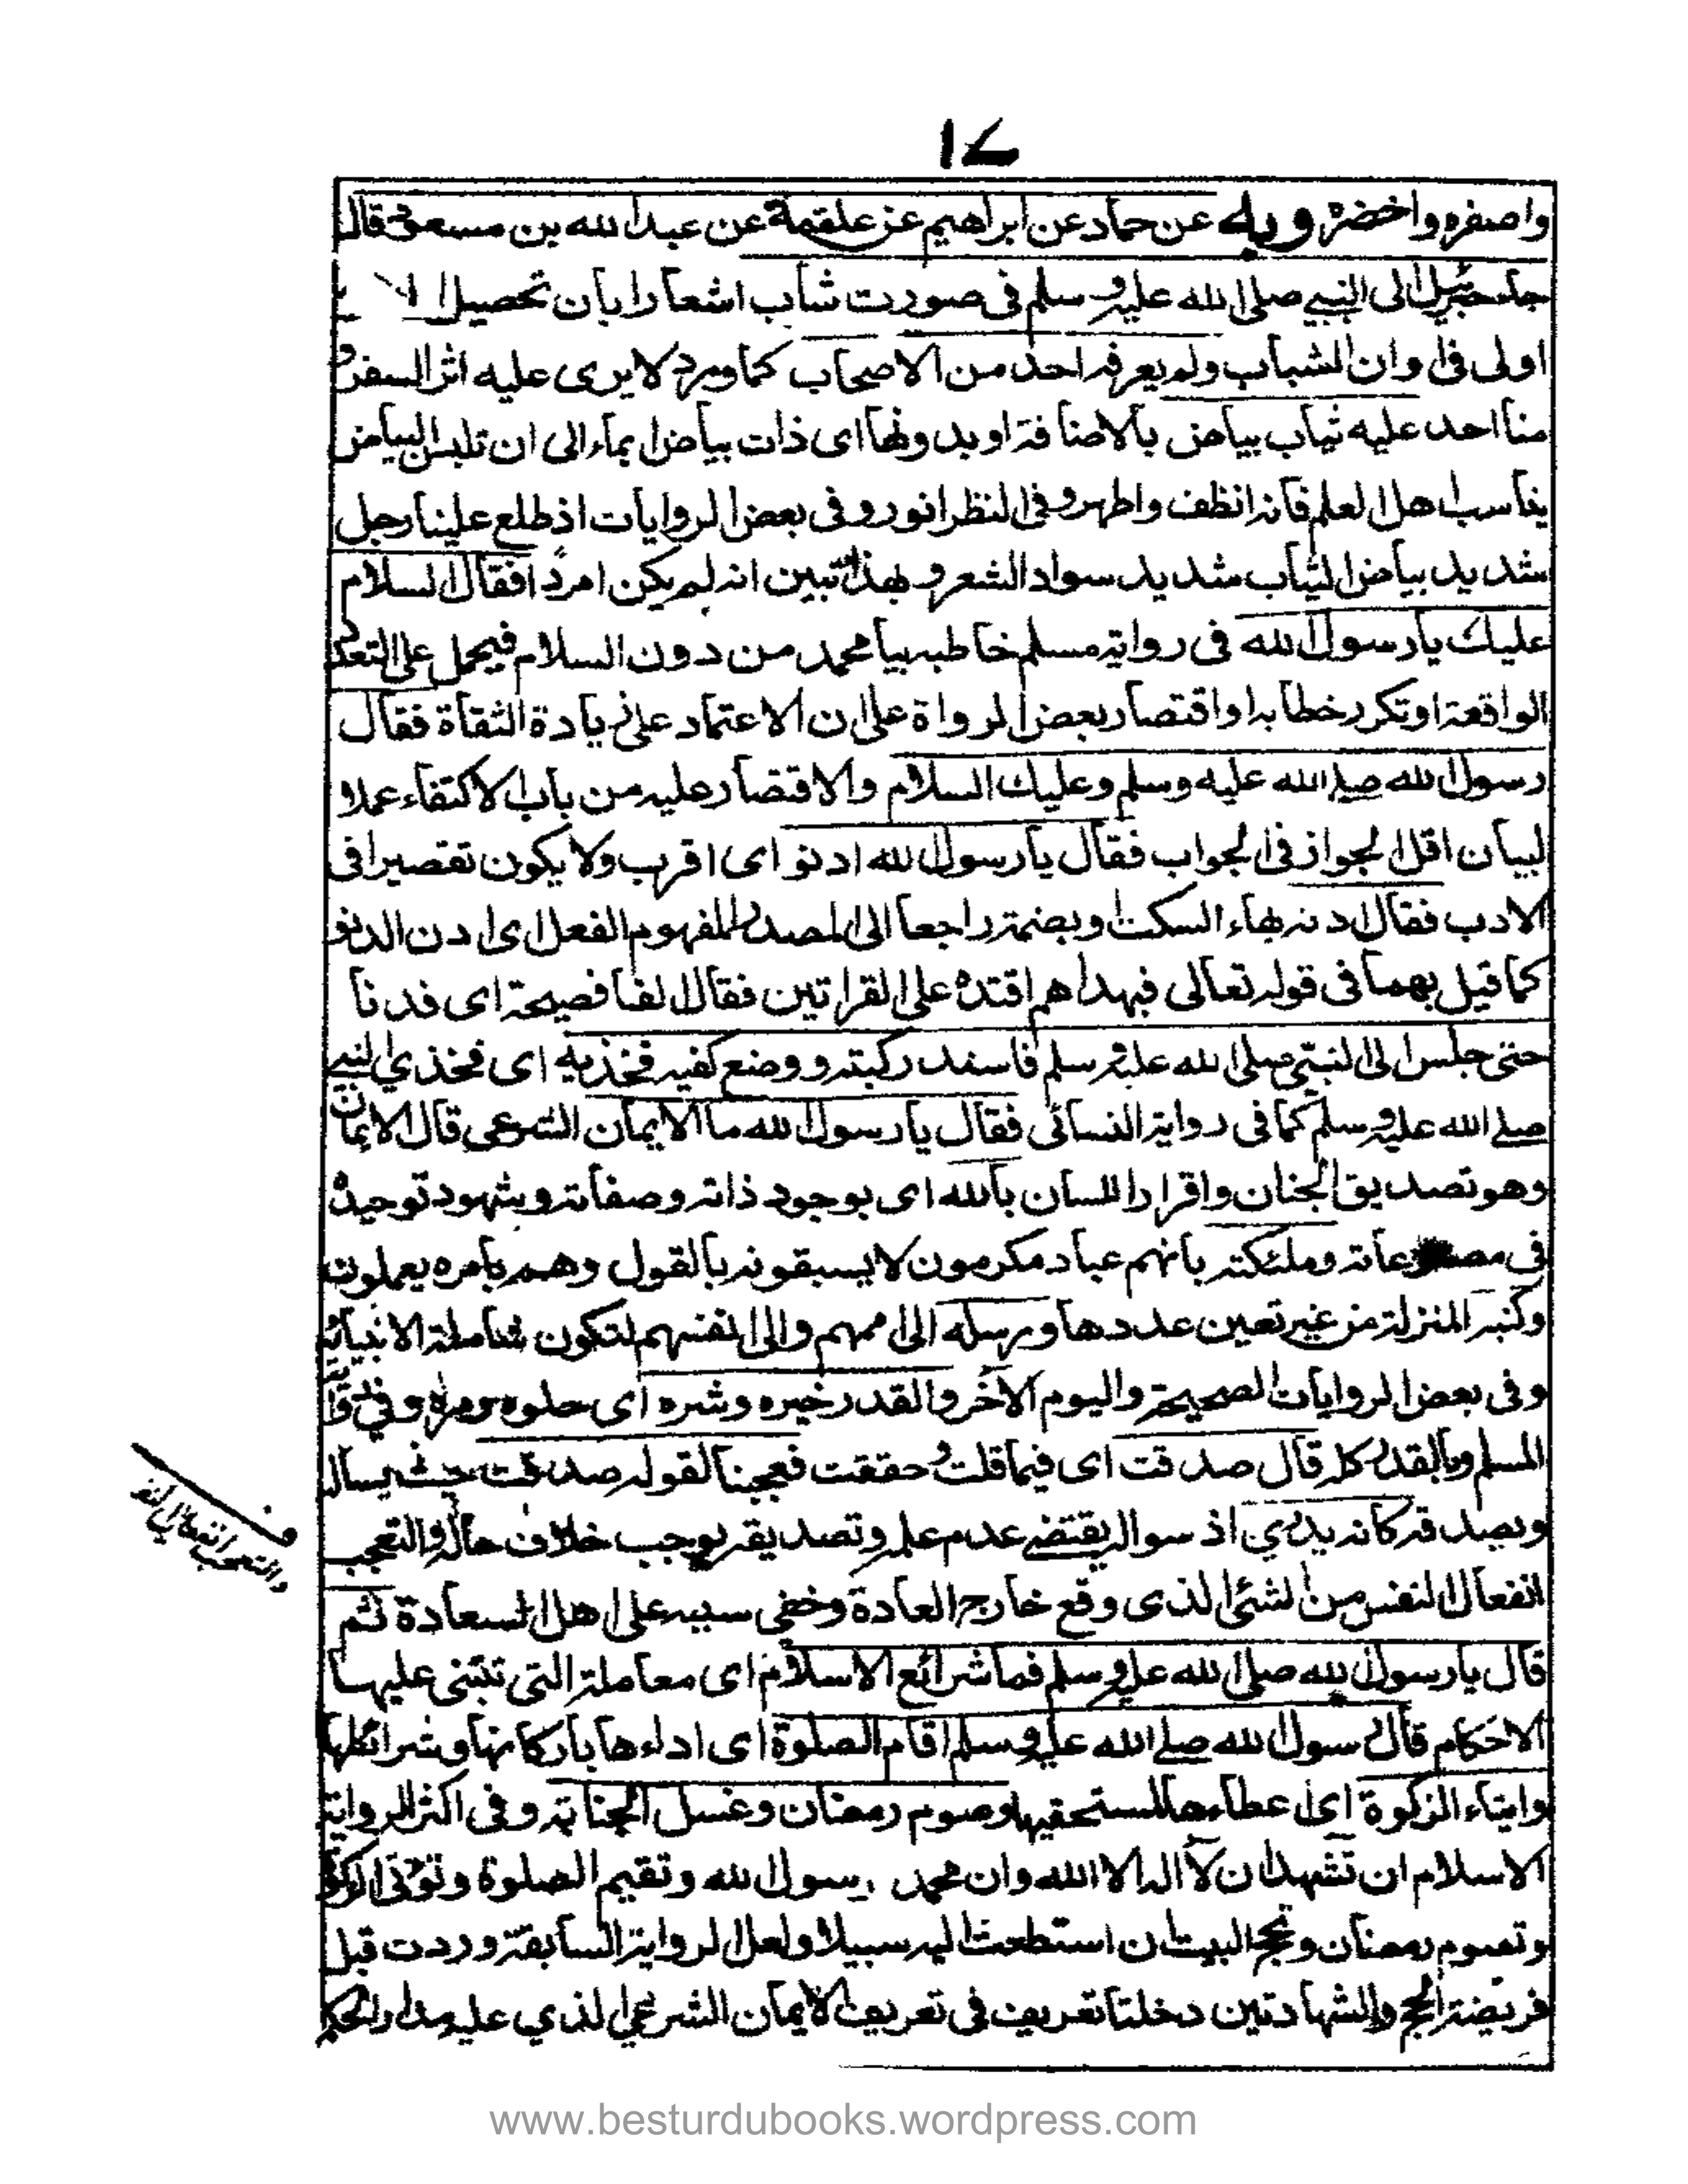 ١٧
واصفره واخضره وبه عن حماد عن ابراهيم عن علقمة عن عبد الله بن مسعود قال
جاء جبرئيل الى النبي صلى الله عليه وسلم فى صورت شاب اشعارا بان تحصيل
اولى فى اوان الشباب ولم يعرفه احد من الاصحاب كما ورد لا يرى عليه اثر السفر و
منا احد عليه ثياب بياض بالاضافة او بدونها اى ذات بياض ايماء الى ان تلبس البياض
يناسب اهل العلم فانه انظف واطهر وفى النظر انور وفى بعض الروايات اذ طلع علينا رجل
شديد بياض الثياب شديد سواد الشعر وبهذا تبين انه لم يكن امردا فقال السلام
عليك يا رسول الله فى رواية مسلم خاطبه بيا محمد من دون السلام فيحمل على التعدد
الواقعة او تكرر خطابه او اقتصار بعض الرواة على ان الاعتماد على زيادة الثقاة فقال
رسول الله صلى الله عليه وسلم وعليك السلام والاقتصار عليه من باب الاكتفاء عملا
لبيان اقل الجواز فى الجواب فقال يا رسول الله ادنو اى اقرب ولا يكون تقصيرا فى
الادب فقال ادنه بهاء السكت وبضمة راجعا الى المصدر المفهوم الفعل اى ادن الدنو
كما قيل بهما فى قوله تعالى فبهداهم اقتده على القراتين فقال لفا فصيحة اى فدنا
حتى جلس الى النبي صلى الله عليه وسلم فاسند ركبته ووضع كفيه فخذيه اى فخذي النبي
صلى الله عليه وسلم كما فى رواية النسائى فقال يا رسول الله ما الايمان الشرعى قال الايمان
وهو تصديق الجنان واقرار اللسان بالله اى بوجود ذاته وصفاته وبشهود توحيده
فى مصنوعاته وملئكته بانهم عباد مكرمون لا يسبقونه بالقول وهم بامره يعملون
وكتبه المنزلة من غير تعين عددها ورسله الى اممهم والى انفسهم لتكون شاملة الانبيائه
وفى بعض الروايات الصحيحة واليوم الآخر والقدر خيره وشره اى حلوه ومره وفى
المسلم وبالقدر كله قال صدقت اى فيما قلت وحققت فعجبنا لقوله صدقت حيث يساله
ويصدقه كانه يدري اذ سواله يقتضى عدم علمه وتصديقه يوجب خلاف حاله والتعجب
انفعال النفس من الشئ الذى وقع خارج العادة وخفى سببه على اهل السعادة ثم
قال يا رسول الله صلى الله عليه وسلم فما شرائع الاسلام اى معاملة التى تبتنى عليها
الاحكام قال رسول الله صلى الله عليه وسلم اقام الصلوة اى اداءها باركانها وشرائطها
وايتاء الزكوة اى اعطاءها لمستحقيها وصوم رمضان وغسل الجنابة وفى اكثر الرواية
الاسلام ان تشهد ان لا اله الا الله وان محمد رسول الله وتقيم الصلوة وتؤتى الزكوة
وتصوم رمضان وتحج البيت ان استطعت اليه سبيلا ولعل الرواية السابقة وردت قبل
فريضة الحج والشهادتين دخلتا تعريف فى تعريف الايمان الشرعى الذي عليه مدار الحكم
والتعجب انفعال النف
www.besturdubooks.wordpress.com